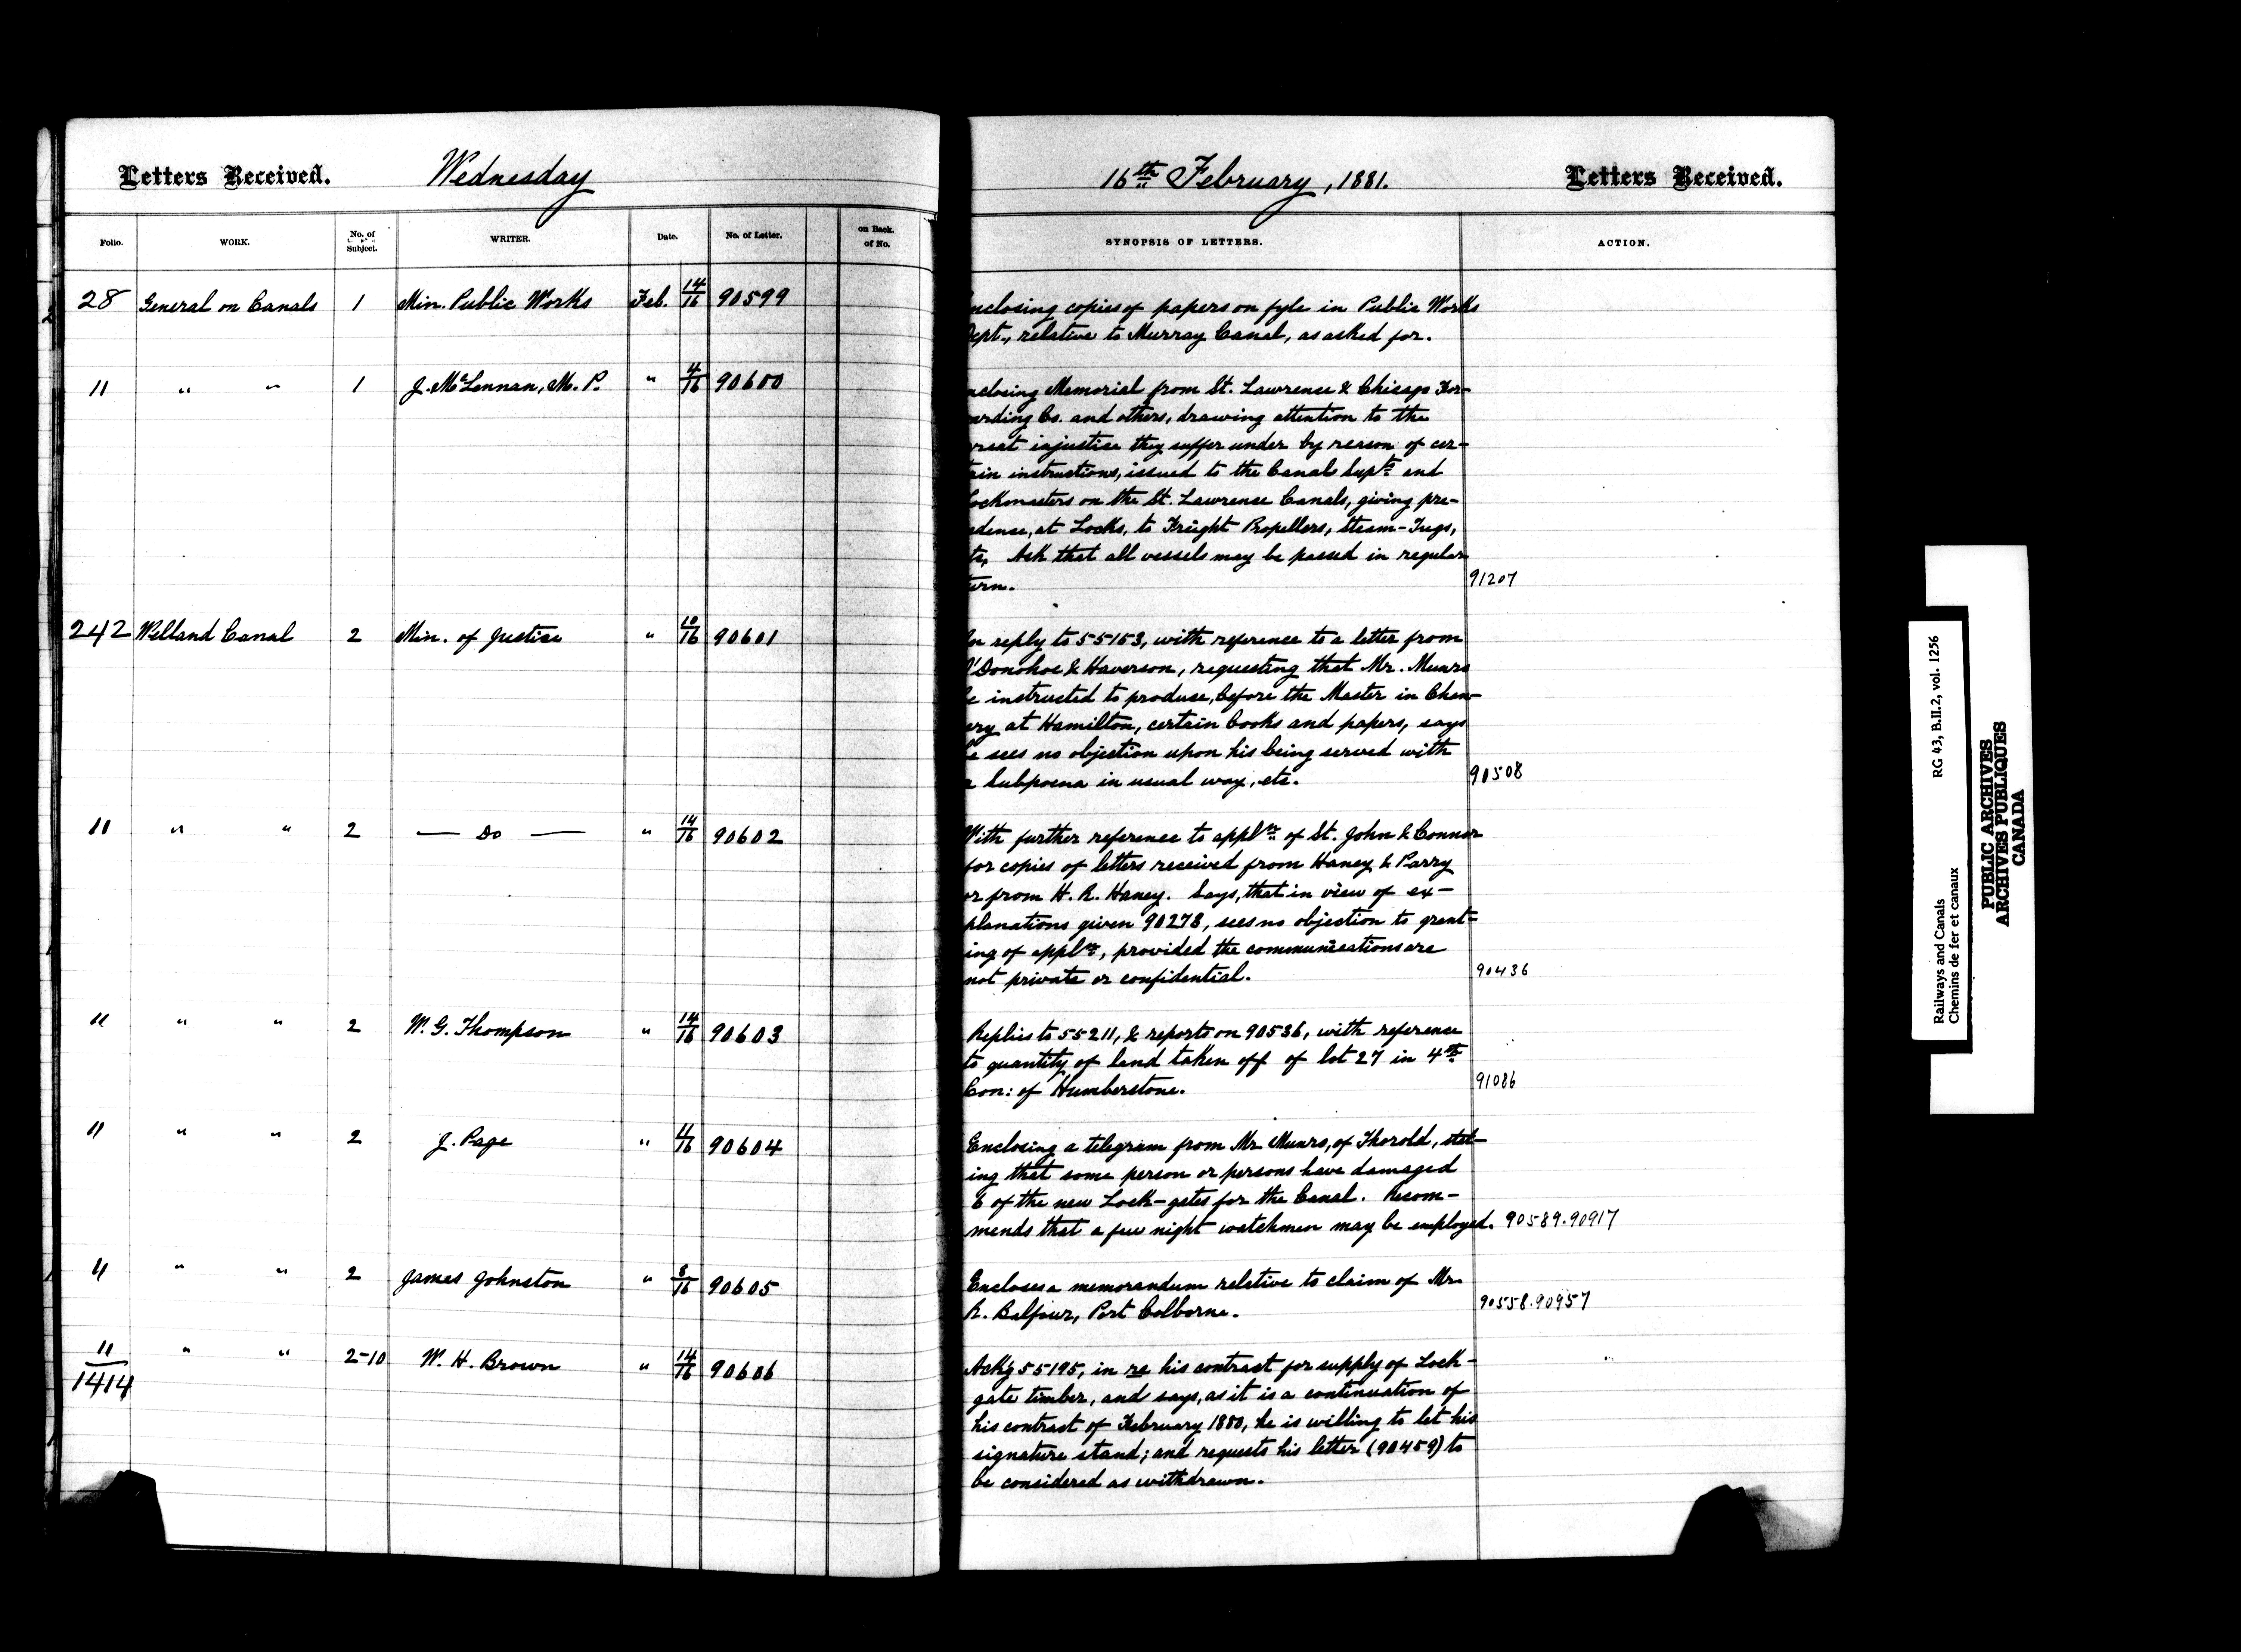 Letters Received. Wednesday
Folio. WORK. No. of Subject. WRITER. Date. No. of Letter. on Back. of No.
28 General on Canals 1 Min. Public Works Feb. 14/16 90599
11 " " 1 J. McLennan, M. P. " 4/16 90600
242 Welland Canal 2 Min. of Justice " 10/16 90601
11 " " 2 — Do — " 14/16 90602
11 " " 2 W. G. Thompson " 14/16 90603
11 " " 2 J. Page " 11/16 90604
11 " " 2 James Johnston " 8/16 90605
11/1414 " " 2-10 W. H. Brown " 14/16 90606
16th February, 1881. Letters Received.
SYNOPSIS OF LETTERS. ACTION.
nclosing copies of papers on fyle in Public Works
Dept., relative to Murray Canal, as asked for.
nclosing Memorial from St. Lawrence & Chicago For-
warding Co. and others, drawing attention to the
great injustice they suffer under by reason of cer-
tain instructions, issued to the Canals Supts and
Lockmasters on the St. Lawrence Canals, giving pre-
cedence, at Locks, to Freight Propellers, Steam-Tugs,
etc, Ask that all vessels may be passed in regular
turn. 91207
In reply to 55153, with reference to a letter from
O'Donohoe & Haverson, requesting that Mr. Munro
be instructed to produce, before the Master in Chan-
cery at Hamilton, certain books and papers, says
he sees no objection upon his being served with
a Subpoena in usual way, etc. 90508
With further reference to appln of St. John & Connor
for copies of letters received from Haney & Parry
or from H. R. Haney. Says, that in view of ex-
planations given 90278, sees no objection to grant-
ing of appln, provided the communications are
not private or confidential. 90436
Replies to 55211, & reports on 90536, with reference
to quantity of land taken off of lot 27 in 4th
Con: of Humberstone. 91086
Enclosing a telegram from Mr. Munro, of Thorold, stat-
ing that some person or persons have damaged
6 of the new Lock-gates for the Canal. Recom-
mends that a few night watchmen may be employed. 90589.90917
Encloses a memorandum relative to claim of Mr.
R. Balfour, Port Colborne. 90558.90957
Ackg 55195, in re his contract for supply of Lock-
gate timber, and says, as it is a continuation of
his contract of February 1880, he is willing to let his
signature stand; and requests his letter (90459) to
be considered as withdrawn.
Railways and Canals RG 43, B.II.2, vol. 1256
Chemins de fer et canaux
PUBLIC ARCHIVES
ARCHIVES PUBLIQUES
CANADA